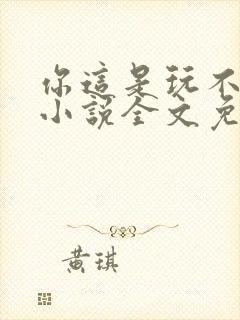 你這是玩不
小說全文免
黃琪